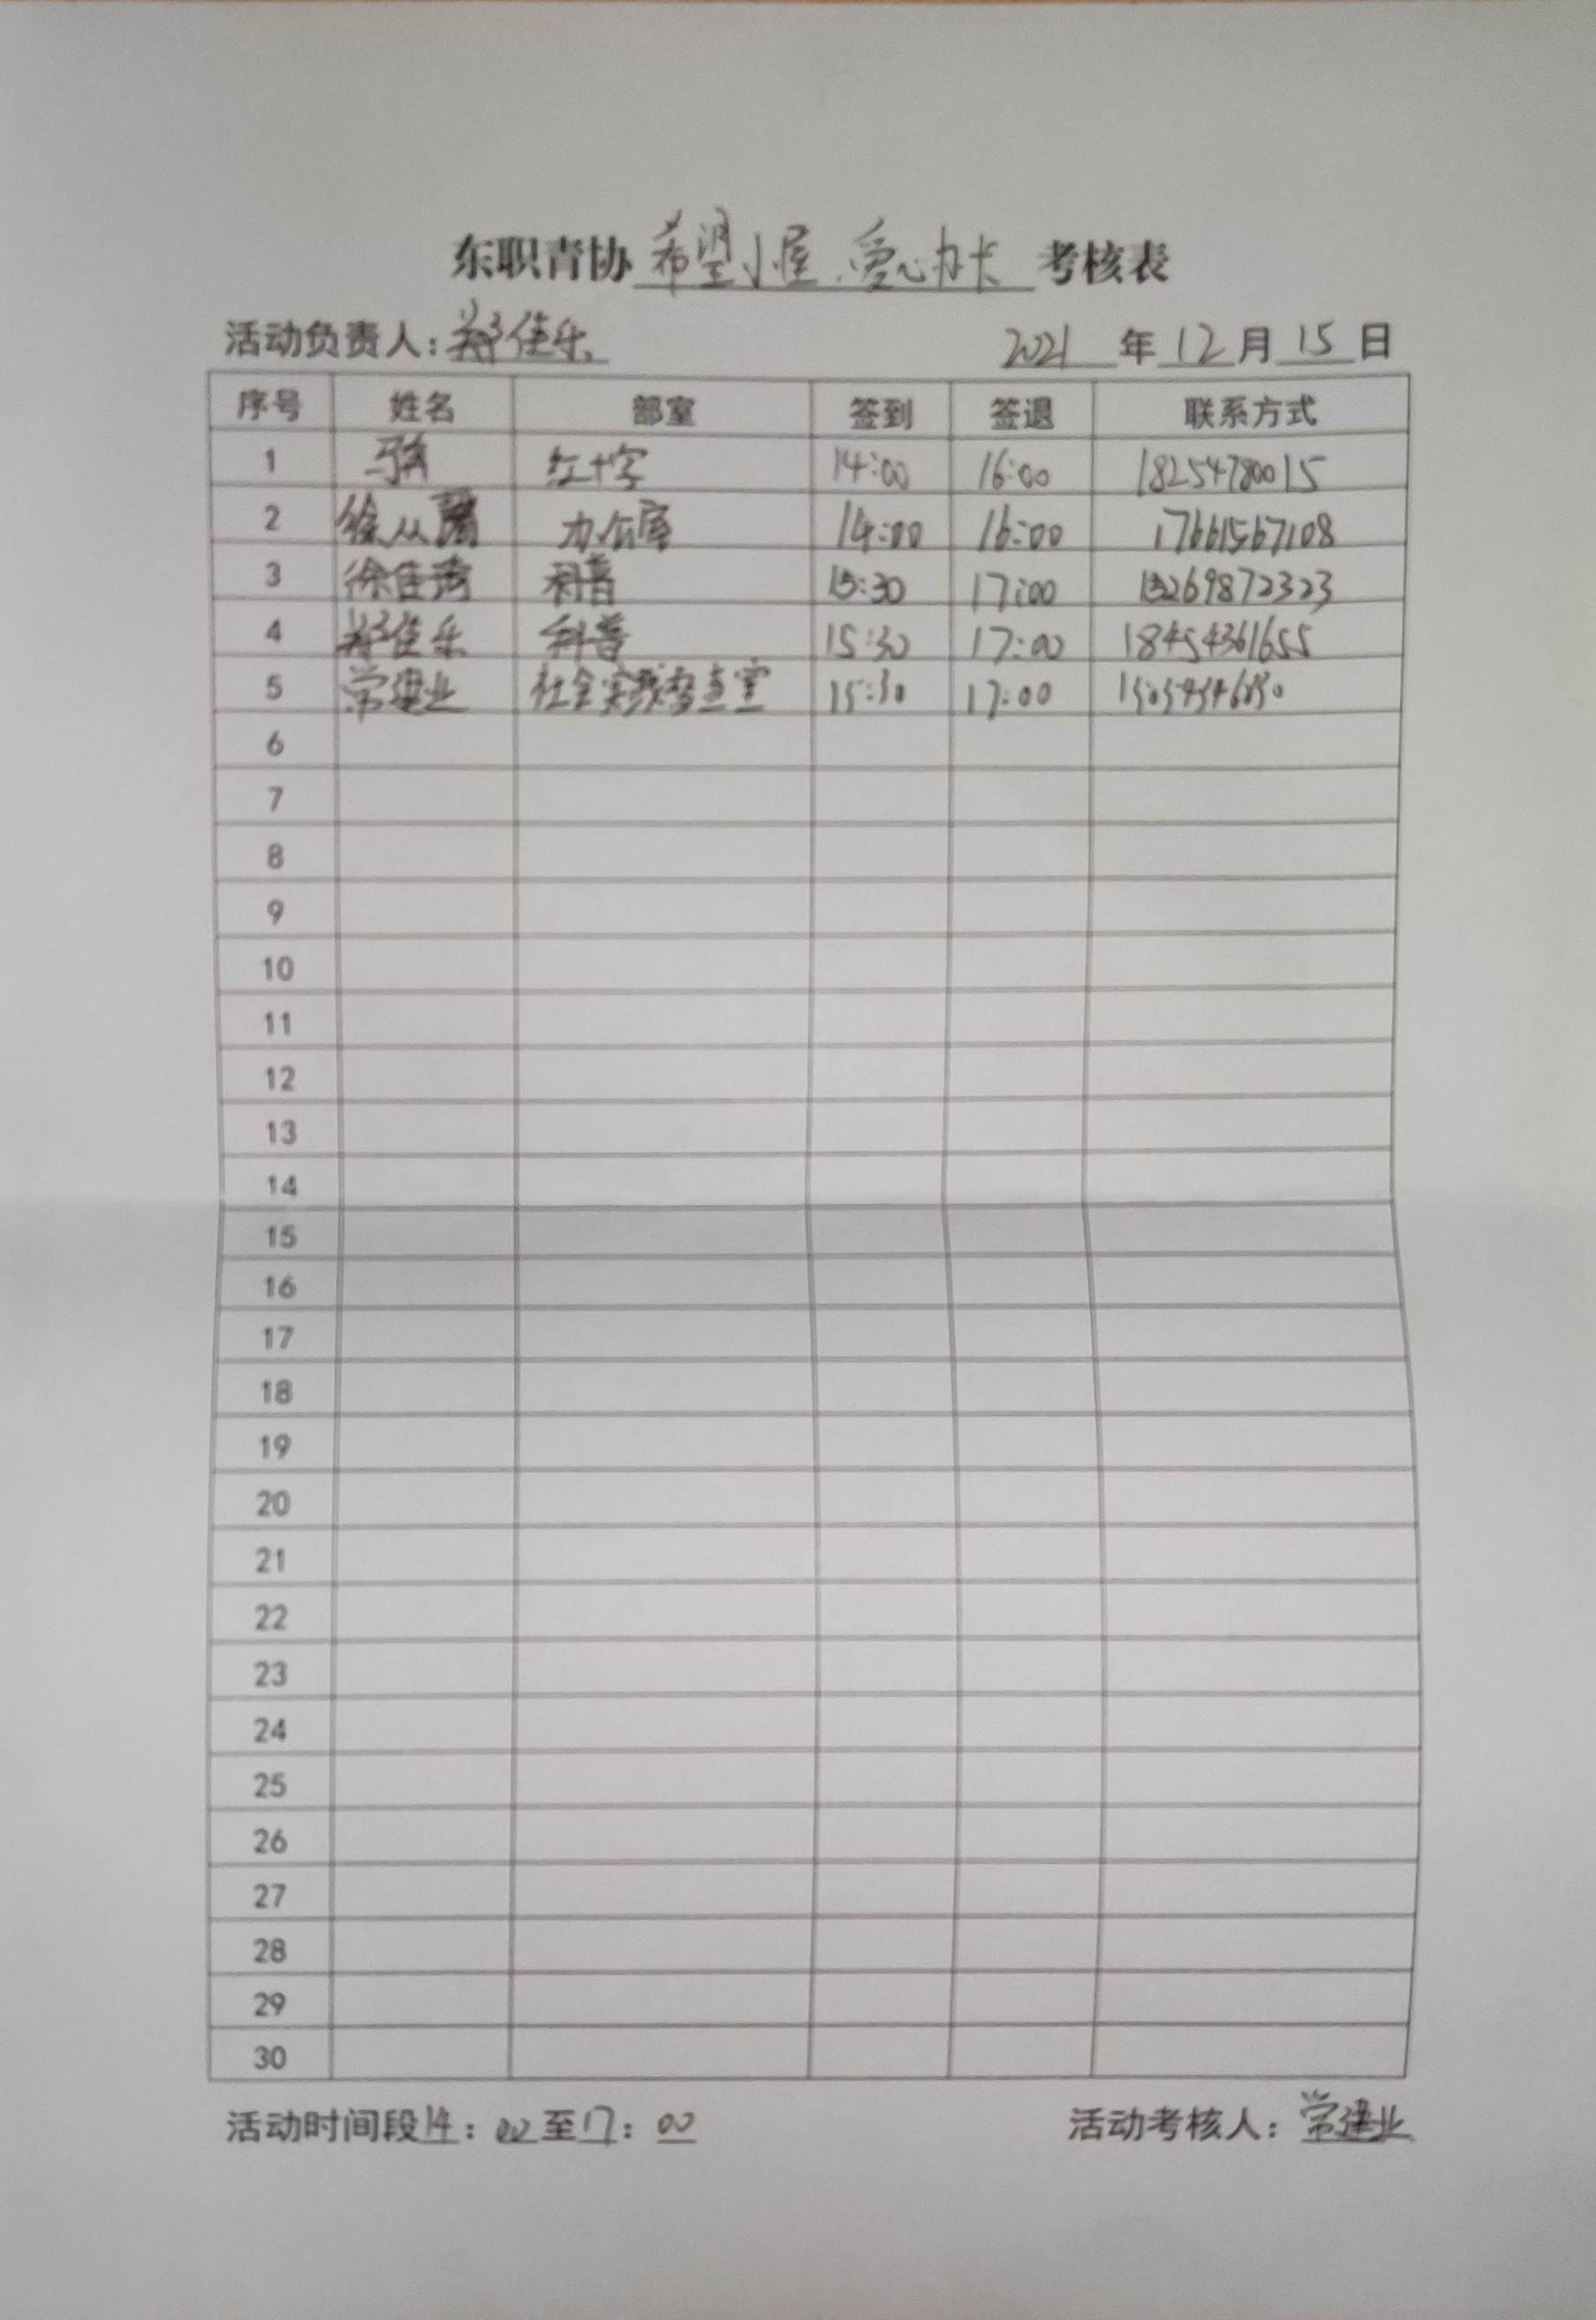 东职青协 希望小屋、爱心办卡 考核表
活动负责人: 郑佳乐 2021 年 12 月 15 日
序号 姓名 部室 签到 签退 联系方式
1 红十字 14:00 16:00 18254780015
2 徐从 办公室 14:00 16:00 17661567108
3 徐佳 科普 15:30 17:00 13269872323
4 郑佳乐 科普 15:30 17:00 18454361655
5 常建业 社会实践 15:30 17:00
6
7
8
9
10
11
12
13
14
15
16
17
18
19
20
21
22
23
24
25
26
27
28
29
30
活动时间段 14: 00 至 17: 00 活动考核人: 常建业